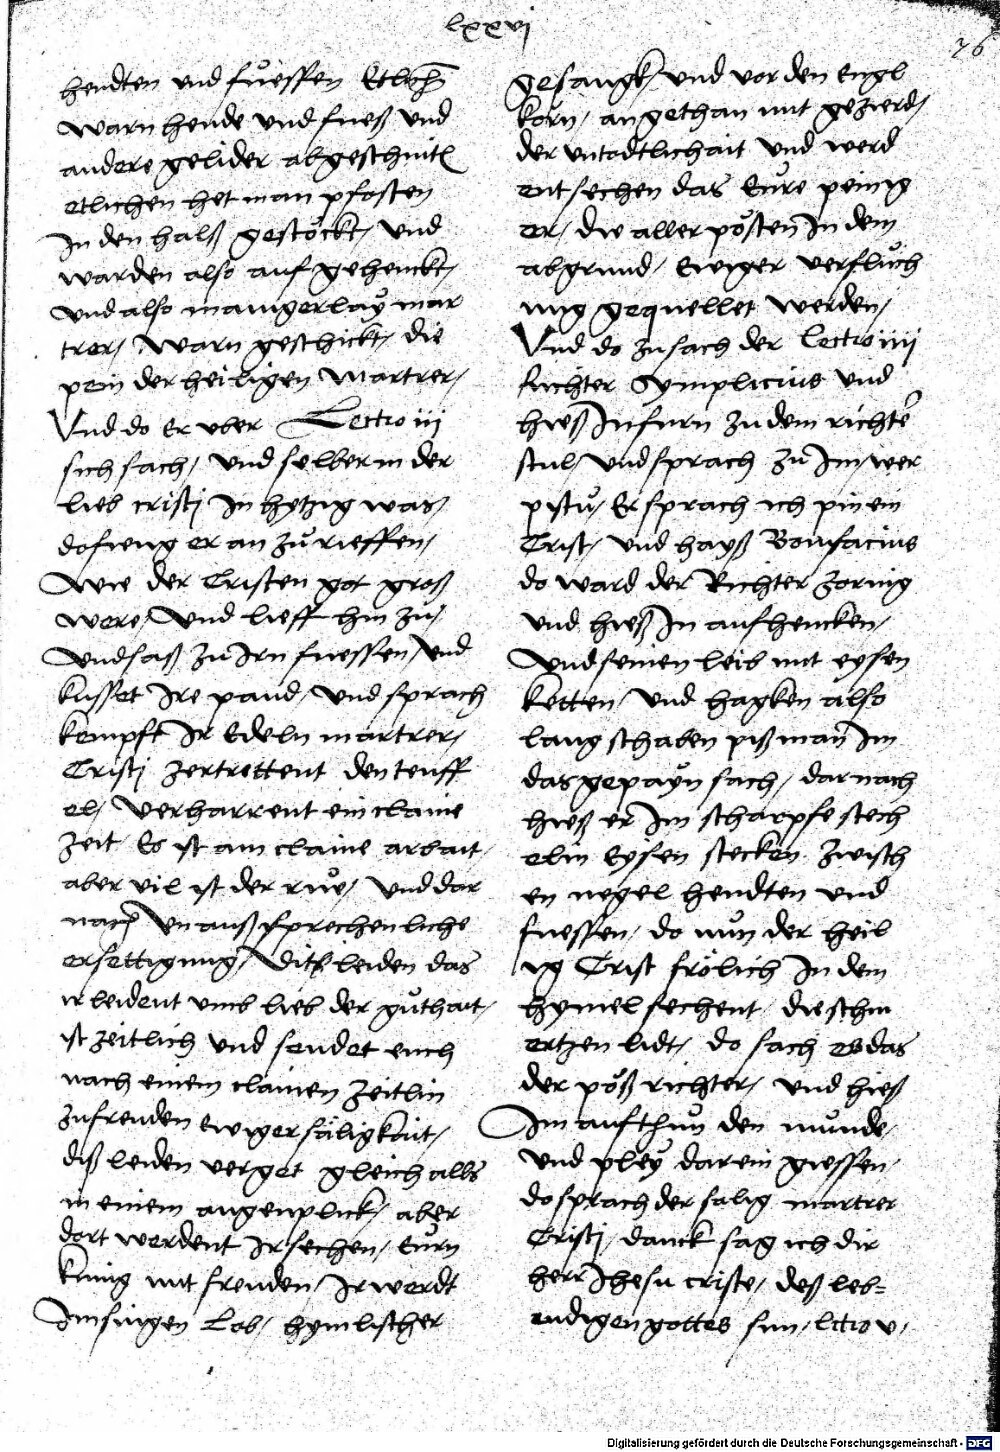 lxxvi
76
hendten vnd fuͤessen Etlich
warn hende vnd fues vnd
andere gelider abgeschnitẽ
etlichen het man pfosten
In den halß gestoͤckt/ vnd
warden also aufgehenckt/
vnd also mangerlaÿ mar
trer/ Warn geschickt/ die
pein der heiligen Martrer/
Vnd do Er vber Lectio iij
sich sach/ vnd selber in der
lieb cristi In hytzig was/
do fieng er an zuͤ rieffen/
Wie der Cristen got groß
were/ Vnd lieff hin zuͤ/
Vnd saß zuͤ Irn fuessen/ vnd
kusset Ire pand/ vnd sprach
kempft Ir Edeln martrer/
Cristi zertrettent den teuff
el/ verharrent ein claine
zeit Es ist ain claine arbait/
aber vil ist der rue/ vnd dar
nach Vnaußsprechenliche
ersettigung/ Ditz leiden das
ir leident vmb lieb der guthait/
ist zeitlich vnd sendet euch
nach einem clainen zeitlin
zu freuden ewiger säligkait/
diß leiden verget gleich alls
in einem augenplick/ aber
dort werdent Ir sechen/ Eurn
kunig mit freuden/ Ir werdt
Im singen Lob/ hymlischer
gesangk/ vnd vor den Engl
korn/ angethan mit gezierd/
der vntodtlichait vnd werd
ent sechen das Eure peinig
er/ die aller poͤsten In dem
abgrund/ Ewiger verfluch
ung gequellet werden/
Vnd do zu sach der Lectio iiij
Richter Symplicius vnd
hieß In furn zu dem richter
stul/ vnd sprach zu Im/ wer
pistu/ Er sprach ich pin ein
Crist/ vnd hayß Bonifacius
do ward der Richter zornig
vnd hieß In aufhencken/
Vnd seinen leib mit eysen
ketten/ vnd hagken also
lang schaben piß man Im
das gepayn sach/ darnach
hieß er Im scharpfe stech
elin Eysen stecken zwisch
en negel hendten vnd
fuessen/ do nun der heil
ig Crist frölich In dem
hymel sechent die schm
ertzen lidt/ do sach es das
der poͤß richter/ vnd hieß
Im aufthun den munde/
vnd pley darein giessen/
do sprach der salig martrer
Cristi/ danck sag ich dir
herr Ihesu criste/ deß leb=
endigen gottes sun/ lctio v/
Digitalisierung gefördert durch die Deutsche Forschungsgemeinschaft - DFG